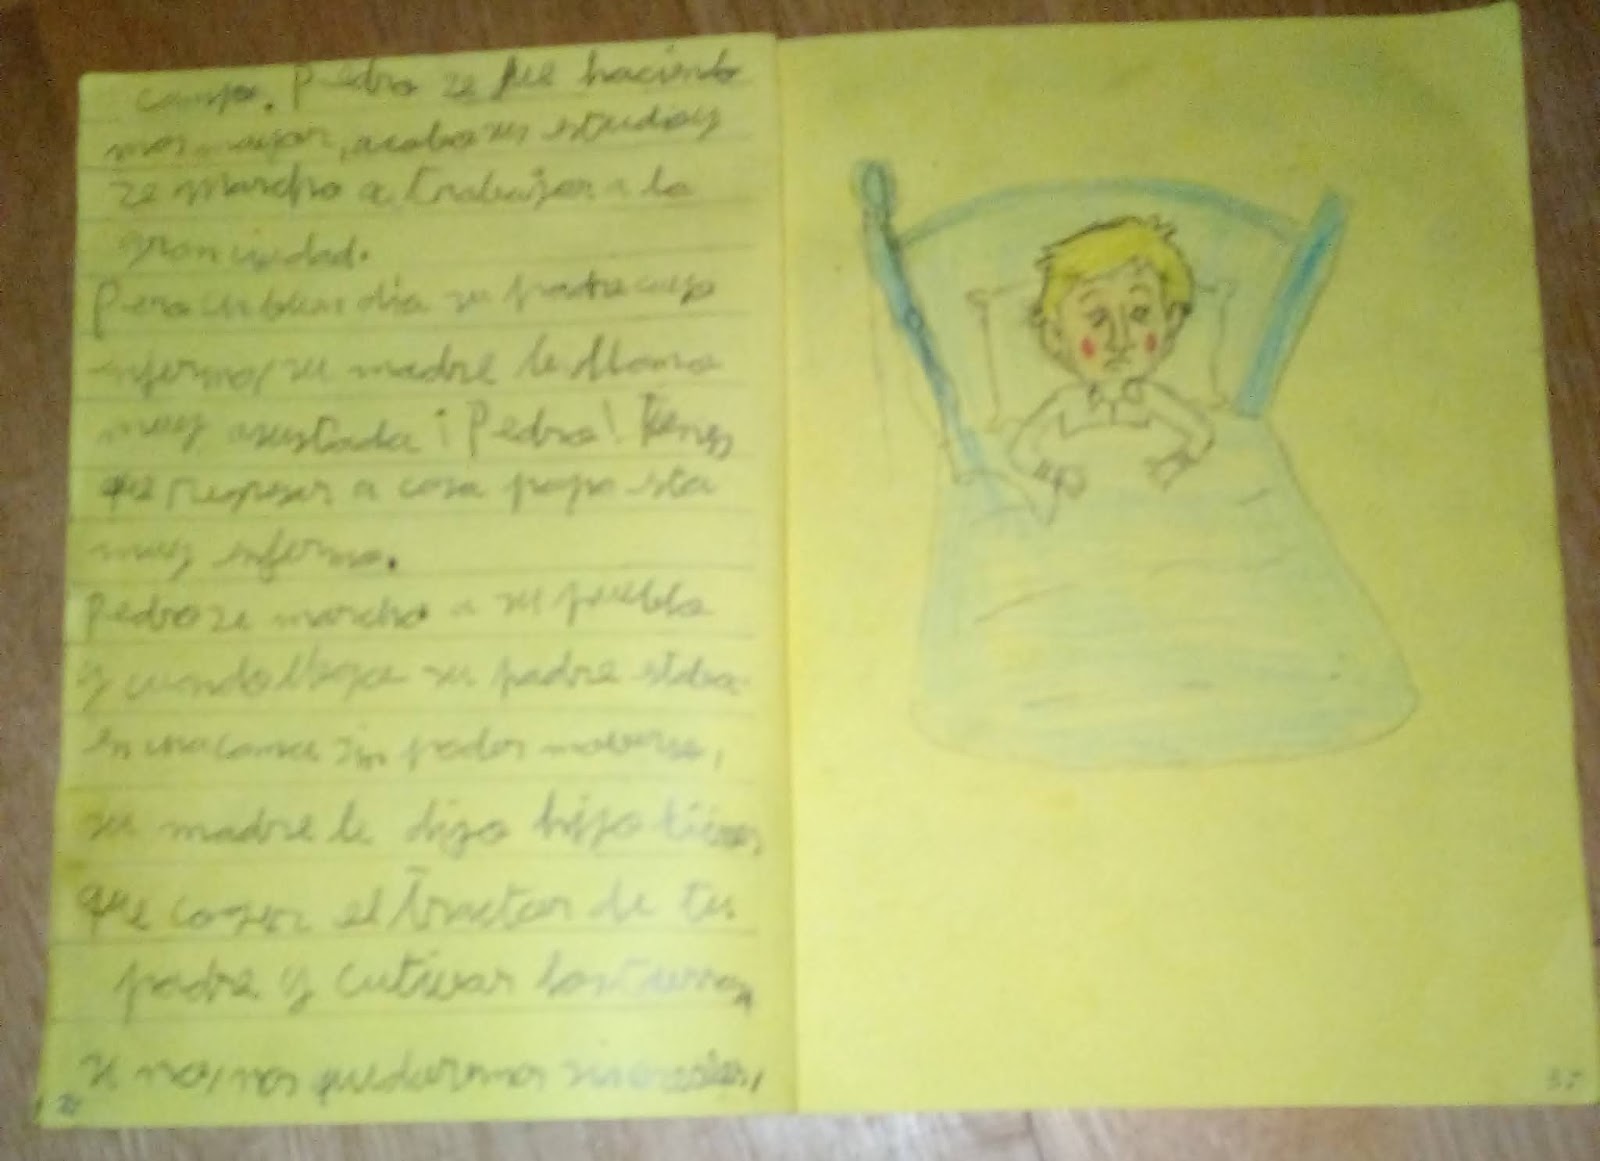 campo. Pedro se fue haciendo
mas mayor, acabo sus estudios y
se marcho a trabajar a la
gran ciudad.
Pero un buen dia su padre cayo
enfermo, su madre le llama
muy asustada ¡Pedro! Tienes
que regresar a casa papa esta
muy enfermo.
Pedro se marcho a su pueblo
y cuando llega su padre estaba
en una cama sin poder moverse,
su madre le dijo hijo tienes
que coger el tractor de tu
padre y cutivar las tierras
si no, nos quedaremos sin